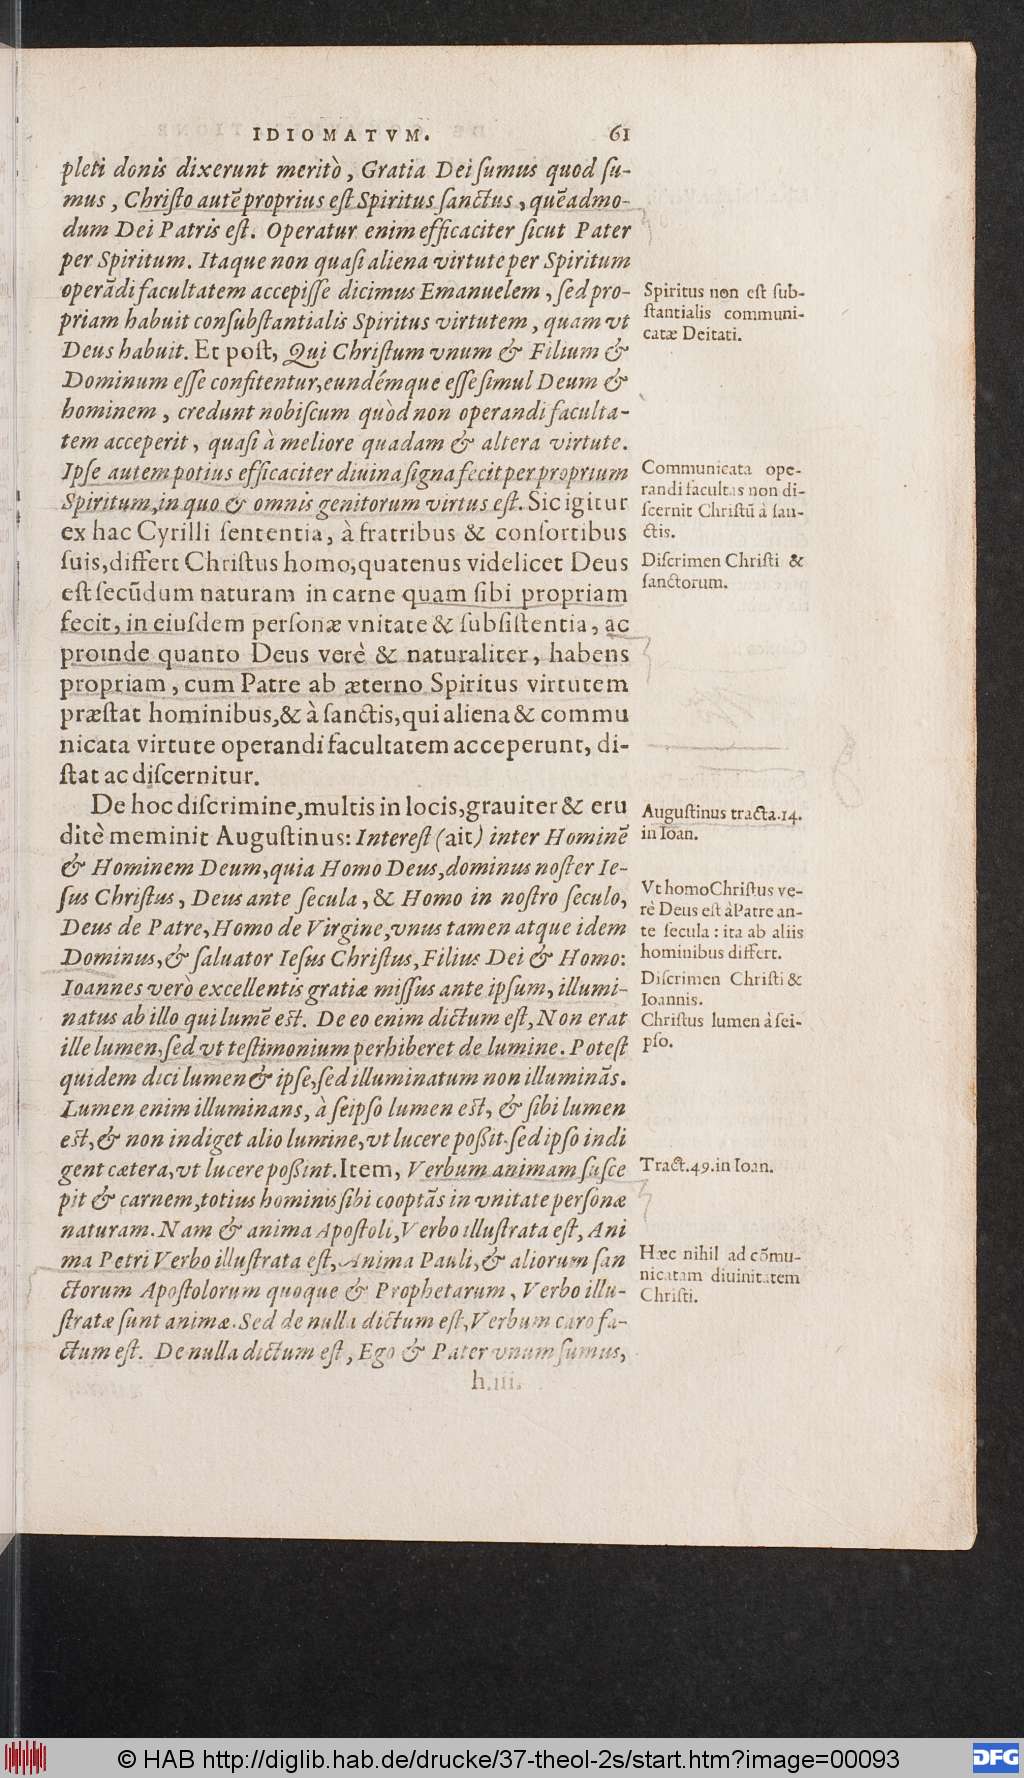 IDIOMATVM. 61
pleti donis dixerunt meritò, Gratia Dei ſumus quod ſu-
mus, Chriſto autẽ proprius eſt Spiritus ſanctus, quẽadmo-
dum Dei Patris eſt. Operatur enim efficaciter ſicut Pater
per Spiritum. Itaque non quaſi aliena virtute per Spiritum
operãdi facultatem accepiſſe dicimus Emanuelem, ſed pro-
priam habuit conſubſtantialis Spiritus virtutem, quam vt
Deus habuit. Et poſt, Qui Chriſtum vnum & Filium &
Dominum eſſe confitentur, eundémque eſſe ſimul Deum &
hominem, credunt nobiſcum quòd non operandi faculta-
tem acceperit, quaſi à meliore quadam & altera virtute.
Ipſe autem potius efficaciter diuina ſigna fecit per proprium
Spiritum, in quo & omnis genitorum virtus eſt. Sic igitur
ex hac Cyrilli ſententia, à fratribus & conſortibus
ſuis, differt Chriſtus homo, quatenus videlicet Deus
eſt ſecũdum naturam in carne quam ſibi propriam
fecit, in eiuſdem perſonæ vnitate & ſubſiſtentia, ac
proinde quanto Deus verè & naturaliter, habens
propriam, cum Patre ab æterno Spiritus virtutem
præſtat hominibus, & à ſanctis, qui aliena & commu
nicata virtute operandi facultatem acceperunt, di-
ſtat ac diſcernitur.
De hoc diſcrimine, multis in locis, grauiter & eru
ditè meminit Auguſtinus: Intereſt (ait) inter Hominẽ
& Hominem Deum, quia Homo Deus, dominus noſter Ie-
ſus Chriſtus, Deus ante ſecula, & Homo in noſtro ſeculo,
Deus de Patre, Homo de Virgine, vnus tamen atque idem
Dominus, & ſaluator Ieſus Chriſtus, Filius Dei & Homo:
Ioannes verò excellentis gratiæ miſſus ante ipſum, illumi-
natus ab illo qui lumẽ eſt. De eo enim dictum eſt, Non erat
ille lumen, ſed vt teſtimonium perhiberet de lumine. Poteſt
quidem dici lumen & ipſe, ſed illuminatum non illuminãs.
Lumen enim illuminans, à ſeipſo lumen eſt, & ſibi lumen
eſt, & non indiget alio lumine, vt lucere poßit. ſed ipſo indi
gent cætera, vt lucere poßint. Item, Verbum animam ſuſce
pit & carnem, totius hominis ſibi cooptãs in vnitate perſonæ
naturam. Nam & anima Apoſtoli, Verbo illuſtrata eſt, Ani
ma Petri Verbo illuſtrata eſt, Anima Pauli, & aliorum ſan
ctorum Apoſtolorum quoque & Prophetarum, Verbo illu-
ſtratæ ſunt animæ. Sed de nulla dictum eſt, Verbum caro fa-
ctum eſt. De nulla dictum eſt, Ego & Pater vnum ſumus,
h.iii.
Spiritus non eſt ſub-
ſtantialis communi-
catæ Deitati.
Communicata ope-
randi facultas non di-
ſcernit Chriſtũ à ſan-
ctis.
Diſcrimen Chriſti &
ſanctorum.
Auguſtinus tracta.14.
in Ioan.
Vt homo Chriſtus ve-
rè Deus eſt à Patre an-
te ſecula: ita ab aliis
hominibus differt.
Diſcrimen Chriſti &
Ioannis.
Chriſtus lumen à ſei-
pſo.
Tract.49.in Ioan.
Hæc nihil ad cõmu-
nicatam diuinitatem
Chriſti.
© HAB http://diglib.hab.de/drucke/37-theol-2s/start.htm?image=00093
DFG